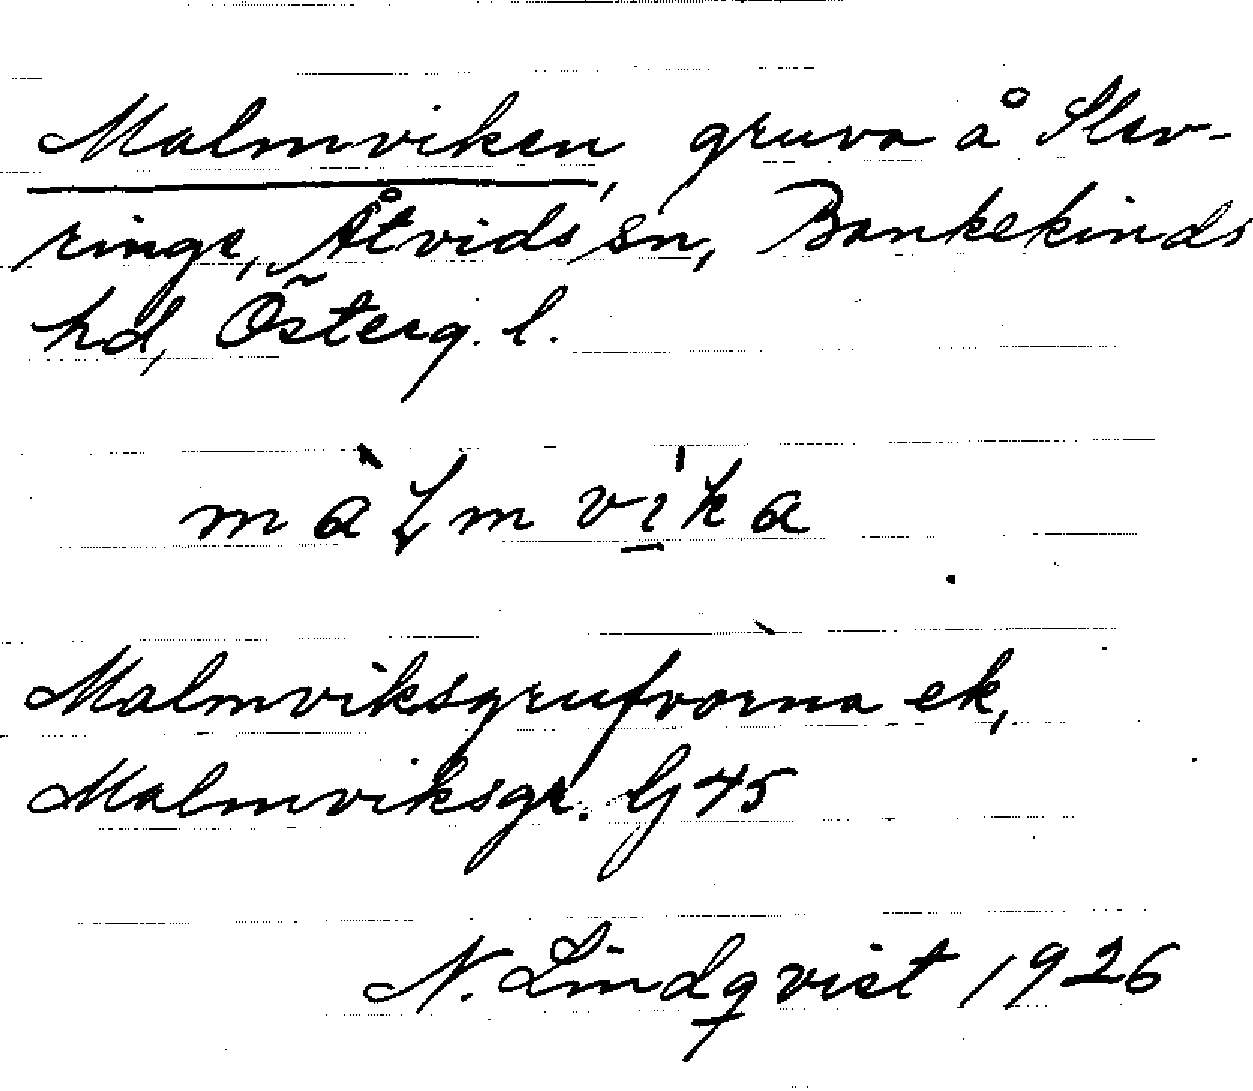 Malmviken, gruva å Slev-
ringe, Åtvids sn, Bankekinds
hd, Österg. l.
màlmvi̠ka
Malmviksgrufvorna ek,
Malmviksgr. G 45
N. Lindqvist 1926